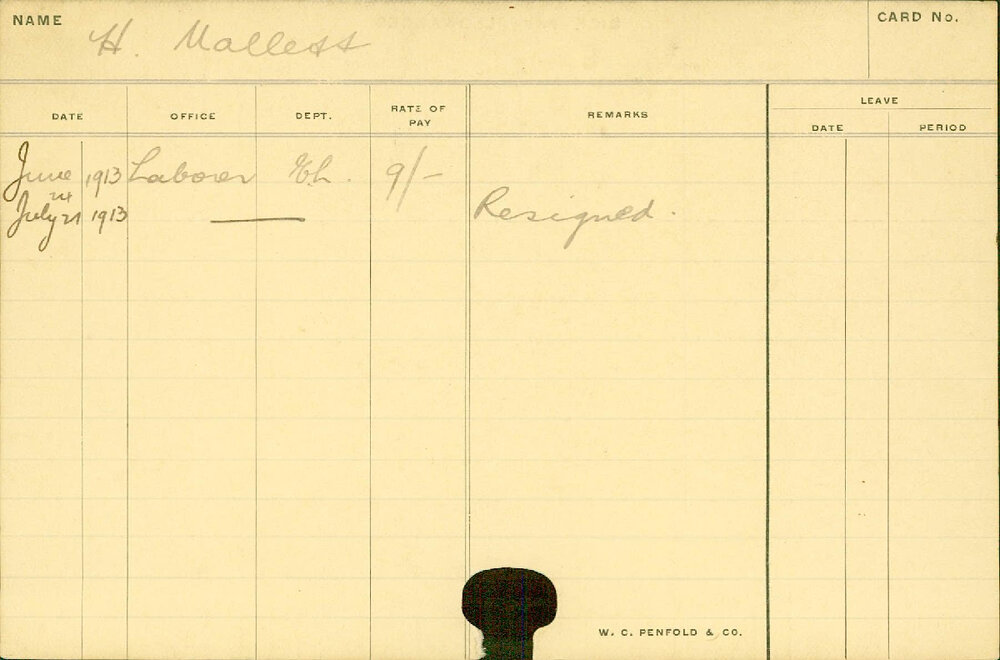 NAME H. Mallett
CARD No.
DATE OFFICE DEPT. RATE OF PAY REMARKS LEAVE
DATE PERIOD
June 1913 Laborer 9/-
July 21 1913 Resigned.
W. C. PENFOLD & CO.